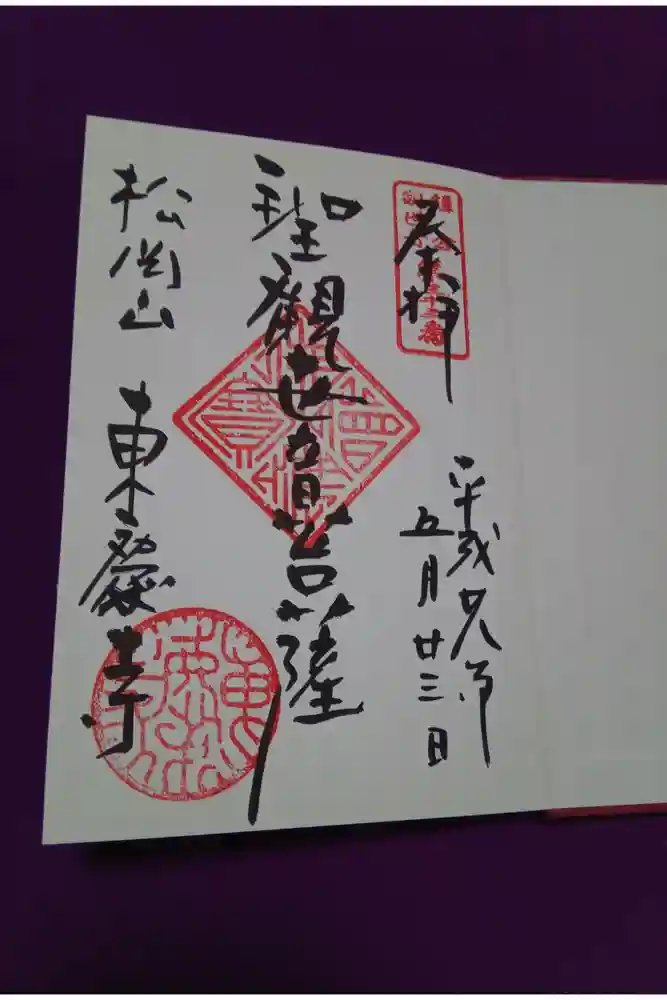 奉拝
平成廿八年
五月廿三日
聖観世音菩薩
松岡山 東慶寺